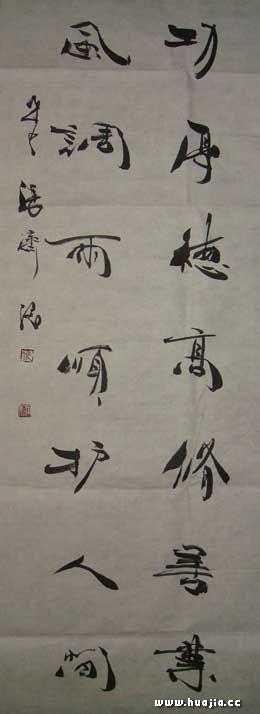 功厚德高修善業
風調雨順护人間
www.huajia.cc